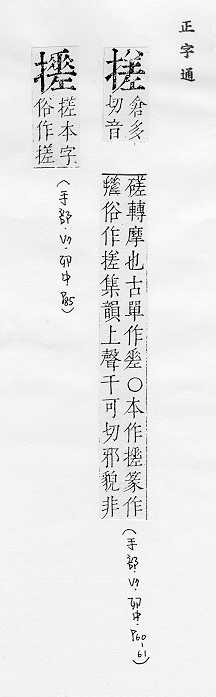 正字通
搓
倉多
切音
磋轉摩也古單作差○本作篆作
俗作搓集韻上聲千可切邪貌非
(手部.V7.卯中.P60-61)
搓本字
俗作搓
(手部.V7.卯中.P85)